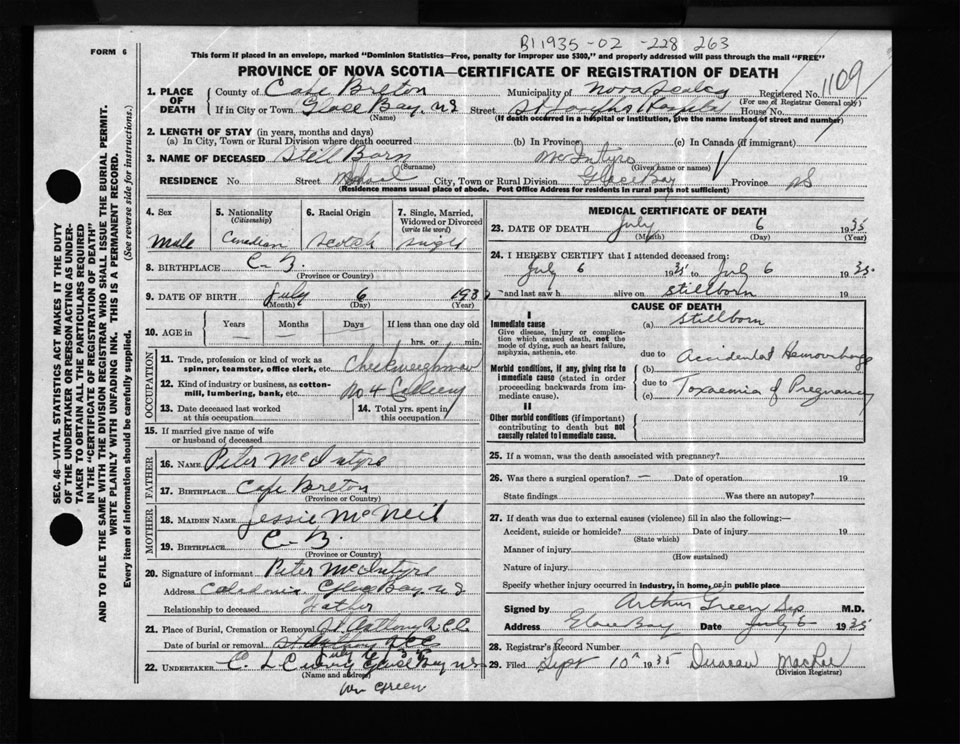 B11935-02-228 263
FORM 6
This form if placed in an envelope, marked "Dominion Statistics—Free, penalty for improper use $300," and properly addressed will pass through the mail "FREE"
PROVINCE OF NOVA SCOTIA—CERTIFICATE OF REGISTRATION OF DEATH
1109
1. PLACE OF DEATH
County of Cape Breton Municipality of Nova Scotia Registered No.
(For use of Registrar General only)
If in City or Town Glace Bay, NS Street St Joseph's Hospital House No.
(Name) (If death occurred in a hospital or institution, give the name instead of street and number)
2. LENGTH OF STAY (in years, months and days)
(a) In City, Town or Rural Division where death occurred (b) In Province (c) In Canada (if immigrant)
3. NAME OF DECEASED Still Born McIntyre
(Surname) (Given name or names)
RESIDENCE No. Street City, Town or Rural Division Glace Bay Province NS
(Residence means usual place of abode. Post Office Address for residents in rural parts not sufficient)
4. Sex
Male
5. Nationality
(Citizenship)
Canadian
6. Racial Origin
Scotch
7. Single, Married, Widowed or Divorced
(write the word)
single
8. BIRTHPLACE C-B.
(Province or Country)
9. DATE OF BIRTH July 6 193
(Month) (Day) (Year)
10. AGE in Years Months Days If less than one day old
hrs. or min.
OCCUPATION
11. Trade, profession or kind of work as spinner, teamster, office clerk, etc. Checkweighman
12. Kind of industry or business, as cotton-mill, lumbering, bank, etc. No 4 Colliery
13. Date deceased last worked at this occupation
14. Total yrs. spent in this occupation
15. If married give name of wife or husband of deceased
FATHER
16. NAME Peter McIntyre
17. BIRTHPLACE Cape Breton
(Province or Country)
MOTHER
18. MAIDEN NAME Jessie McNeil
19. BIRTHPLACE C-B.
(Province or Country)
20. Signature of informant Peter McIntyre
Address Caledonia Glace Bay, NS
Relationship to deceased Father
21. Place of Burial, Cremation or Removal St Anthony's C.C.
Date of burial or removal
22. UNDERTAKER C. L. Curry Glace Bay NS
(Name and address)
Wm Green
MEDICAL CERTIFICATE OF DEATH
23. DATE OF DEATH July 6 1935
(Month) (Day) (Year)
24. I HEREBY CERTIFY that I attended deceased from:
July 6 1935 to July 6 1935
and last saw h alive on stillborn 19
CAUSE OF DEATH
I
Immediate cause
Give disease, injury or complication which caused death, not the mode of dying, such as heart failure, asphyxia, asthenia, etc
(a) stillborn
due to Accidental Hemorrhage
Morbid conditions, if any, giving rise to immediate cause (stated in order proceeding backwards from immediate cause).
(b)
due to Toxaemia of Pregnancy
(c)
II
Other morbid conditions (if important) contributing to death but not causally related to immediate cause.
25. If a woman, was the death associated with pregnancy?
26. Was there a surgical operation? — Date of operation 19
State findings Was there an autopsy?
27. If death was due to external causes (violence) fill in also the following:—
Accident, suicide or homicide? Date of injury 19
(State which)
Manner of injury
(How sustained)
Nature of injury
Specify whether injury occurred in industry, in home, or in public place
Signed by Arthur Green M.D.
Address Glace Bay Date July 6 1935
28. Registrar's Record Number
29. Filed Sept 10 1935 Duncan MacRae
(Division Registrar)
SEC. 46—VITAL STATISTICS ACT MAKES IT THE DUTY
OF THE UNDERTAKER OR PERSON ACTING AS UNDER-
TAKER TO OBTAIN ALL THE PARTICULARS REQUIRED
IN THE "CERTIFICATE OF REGISTRATION OF DEATH"
AND TO FILE THE SAME WITH THE DIVISION REGISTRAR WHO SHALL ISSUE THE BURIAL PERMIT.
WRITE PLAINLY WITH UNFADING INK. THIS IS A PERMANENT RECORD.
Every item of information should be carefully supplied. (See reverse side for instructions.)